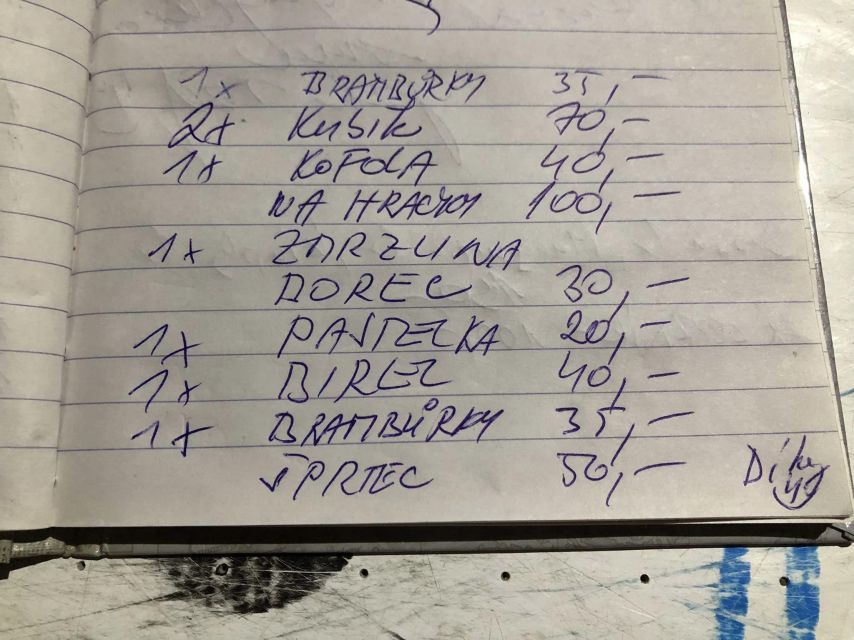 1x BRAMBŮRKY 35,–
2x Kubík 70,–
1x KOFOLA 40,–
NA HRAČKY 100,–
1x ZMRZLINA
DOREC 30,–
1x PAŠTEČKA 20,–
1x BIREL 40,–
1x BRAMBŮRKY 35,–
ŠPRTEC 50,–
Díky